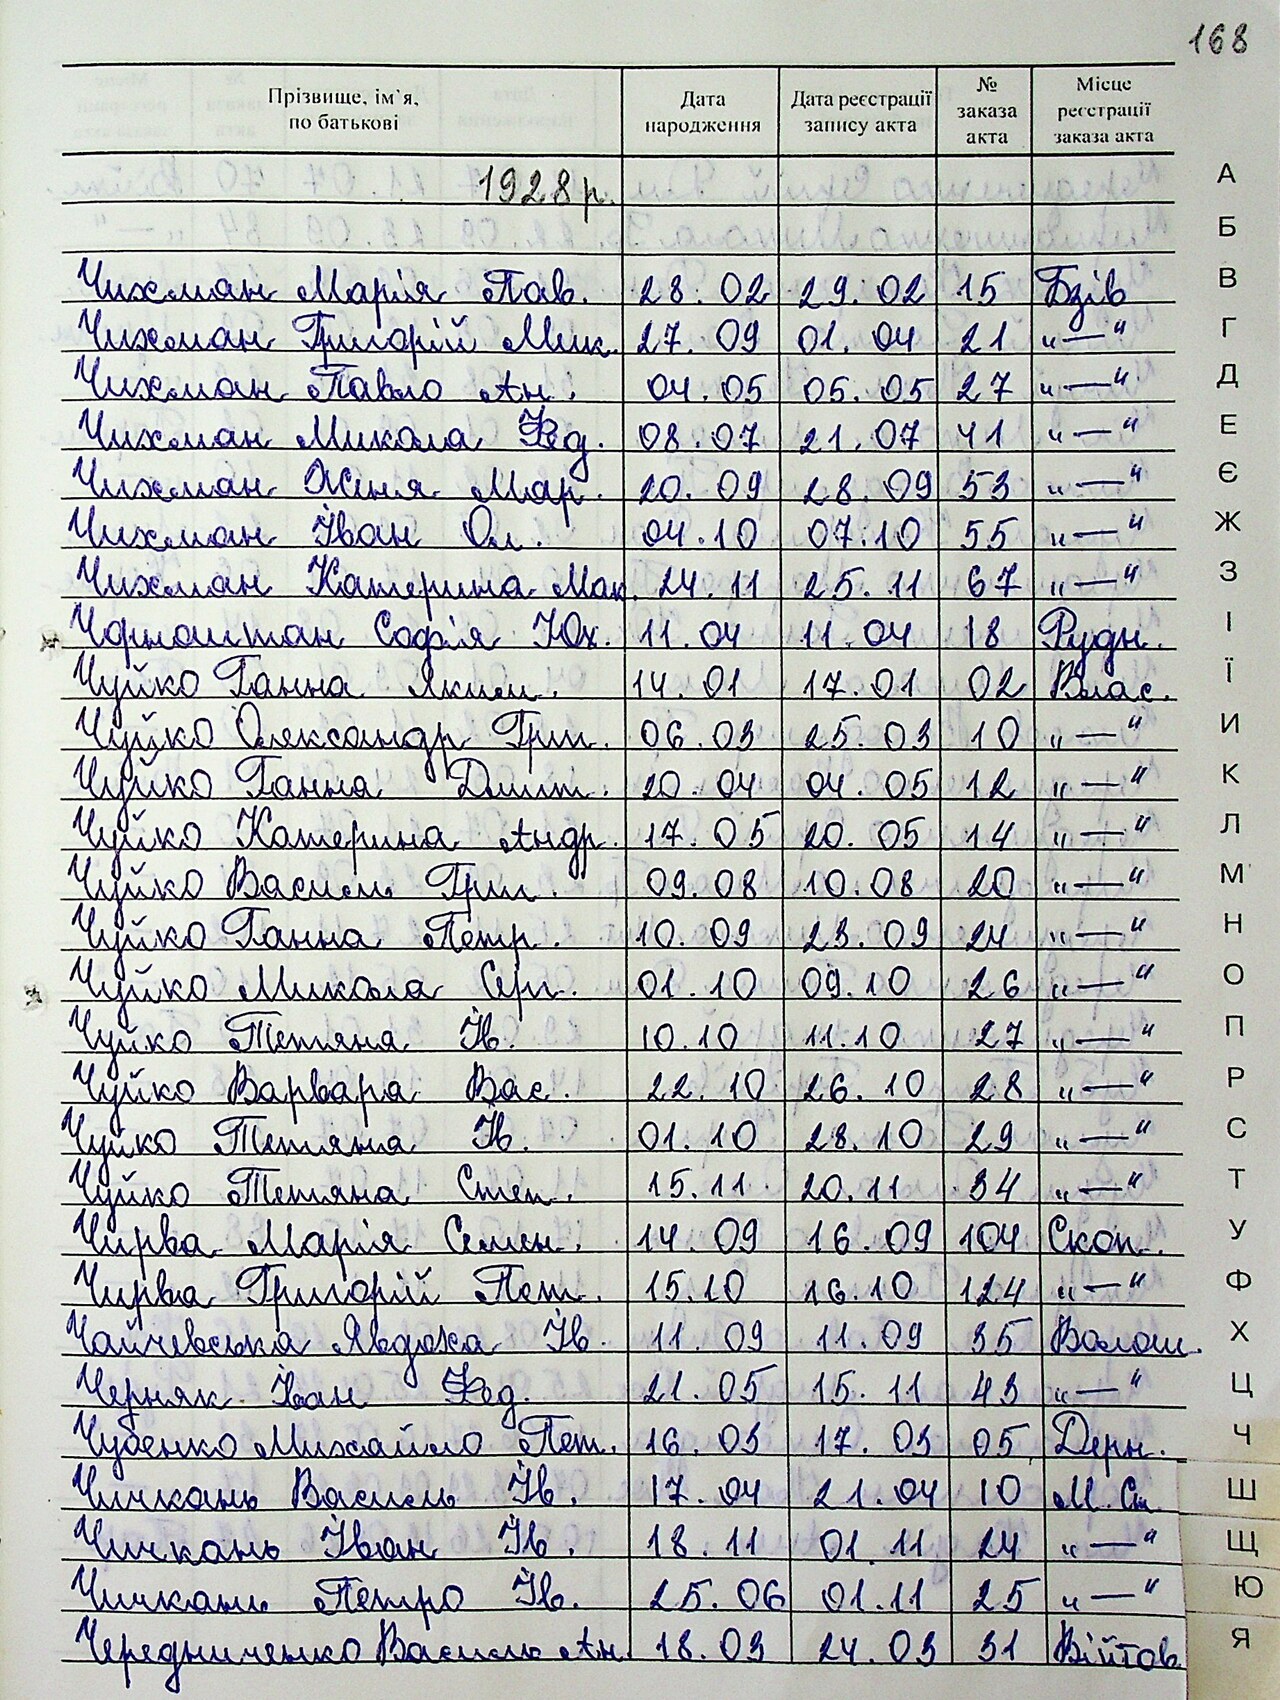 168
Прізвище, ім'я, по батькові | Дата народження | Дата реєстрації запису акта | № заказа акта | Місце реєстрації заказа акта
1928 р.
Чихман Марія Пав. 28.02 29.02 15 Бзів
Чихман Григорій Мик. 27.09 01.04 21 „—"
Чихман Павло Ан. 04.05 05.05 27 „—"
Чихман Микола Фед. 08.07 21.07 41 „—"
Чихман Ксня Мар. 20.09 28.09 53 „—"
Чихман Іван Ол. 04.10 07.10 55 „—"
Чихман Катерина Мак. 24.11 25.11 67 „—"
Чорноштан Софія Юх. 11.04 11.04 18 Рудн.
Чуйко Ганна Яким. 14.01 17.01 02 Влас.
Чуйко Олександр Грип. 06.03 25.03 10 „—"
Чуйко Ганна Дмит. 20.04 04.05 12 „—"
Чуйко Катерина Андр. 17.05 20.05 14 „—"
Чуйко Василь Грип. 09.08 10.08 20 „—"
Чуйко Ганна Петр. 10.09 23.09 24 „—"
Чуйко Микола Серг. 01.10 09.10 26 „—"
Чуйко Тетяна Ів. 10.10 11.10 27 „—"
Чуйко Варвара Вас. 22.10 26.10 28 „—"
Чуйко Тетяна Ів. 01.10 28.10 29 „—"
Чуйко Тетяна Степ. 15.11 20.11 34 „—"
Чирва Марія Семен. 14.09 16.09 104 Скоп.
Чирва Григорій Пет. 15.10 16.10 124 „—"
Чайчевська Явдоха Ів. 11.09 11.09 35 Волош.
Черняк Іван Фед. 21.05 15.11 43 „—"
Чубенко Михайло Пет. 16.03 17.03 05 Дерн.
Чичкань Василь Ів. 17.04 21.04 10 М. Ст.
Чичкань Іван Ів. 18.11 01.11 24 „—"
Чичкань Петро Ів. 25.06 01.11 25 „—"
Чередниченко Василь Ан. 18.03 24.03 31 Війтов.
А
Б
В
Г
Д
Е
Є
Ж
З
І
Ї
И
К
Л
М
Н
О
П
Р
С
Т
У
Ф
Х
Ц
Ч
Ш
Щ
Ю
Я